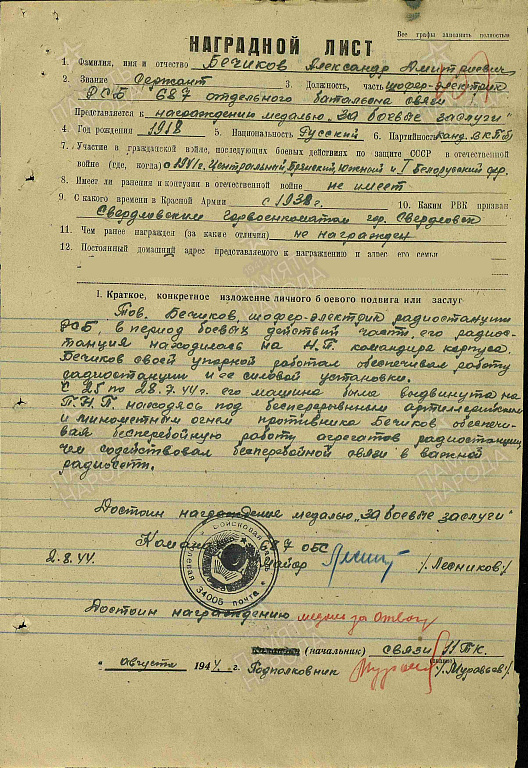 Все графы заполнять полностью
НАГРАДНОЙ ЛИСТ
1. Фамилия, имя и отчество Бечиков Александр Дмитриевич
2. Звание Сержант 3. Должность, часть шофер-электрик
РСБ 687 отдельного батальона связи
Представляется к награждению медалью „За боевые заслуги"
4. Год рождения 1918 5. Национальность Русский 6. Партийность Канд. ВКП(б)
7. Участие в гражданской войне, последующих боевых действиях по защите СССР и отечественной
войне (где, когда) с 1941 г. Центральный, Брянский, Южный и I Белорусский фр.
8. Имеет ли ранения и контузии в отечественной войне не имеет
9. С какого времени в Красной Армии с 1938 г. 10. Каким РВК призван
Свердловским горвоенкоматом гор. Свердловск
11. Чем ранее награжден (за какие отличия) не награжден
12. Постоянный домашний адрес представляемого к награждению и адрес его семьи
I. Краткое, конкретное изложение личного боевого подвига или заслуг
Тов. Бечиков, шофер-электрик радиостанции
РСБ, в период боевых действий части, его радио-
станция находилась на Н.П. командира корпуса.
Бечиков своей упорной работал обеспечивал работу
радиостанции и ее силовой установки.
С 25 по 28.7.44 г. его машина была выдвинута на
П.Н.П. находясь под бесперерывным артиллерийским
и минометным огнем противника Бечиков обеспечи-
вал бесперебойную работу агрегатов радиостанции,
чем содействовал бесперебойной связи в важной
радиосети.
Достоин награждения медалью „За боевые заслуги"
Командир 687 ОБС
2.8.44. майор /Лесников/
Войсковая часть
34005 почта
Достоин награждению медаль за отвагу
(начальник) связи 11 ТК.
(звание)
" Августа 1944 г. Подполковник /Муравьев/
ПАМЯТЬ НАРОДА